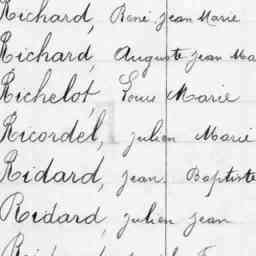 Richard, René Jean Marie
Richard, Auguste Jean Ma
Richelot, Louis Marie
Ricordel, Julien Marie
Ridard, Jean Baptiste
Ridard, Julien Jean